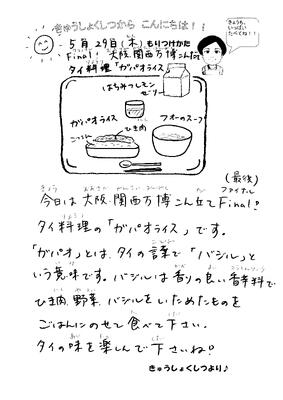 きゅうしょくしつから こんにちは!!
きょうも、
いっぱい
たべてね!!
5月29日(木)もりつけかた
Final! 大阪、関西万博こんだて
タイ料理「ガパオライス」
はちみつレモン
ゼリー
ガパオライス
ひき肉
フォーのスープ
ごはん
(最後)
ファイナル
今日は大阪、関西万博こん立てFinal!
タイ料理の「ガパオライス」です。
「ガパオ」とは、タイの言葉で「バジル」と
いう意味です。バジルは香りの良い香辛料で
ひき肉、野菜、バジルをいためたものを
ごはんにのせて食べて下さい。
タイの味を楽しんで下さいね!
きゅうしょくしつより♪